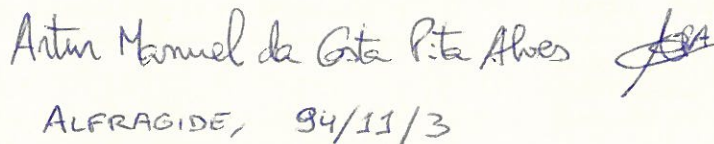 Artur Manuel da Costa Pita Alves
ALFRAGIDE, 94/11/3